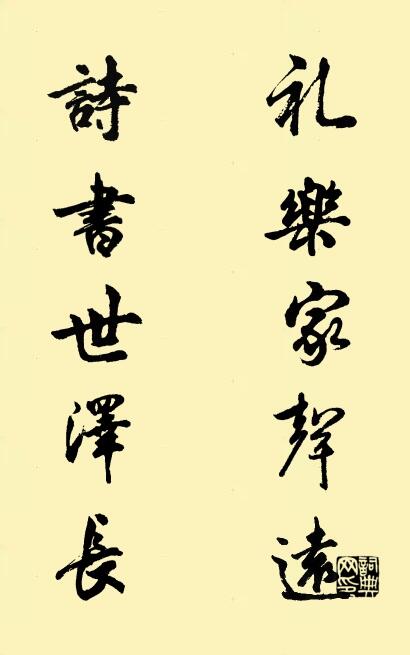 礼樂家聲遠
詩書世澤長
詞典網印